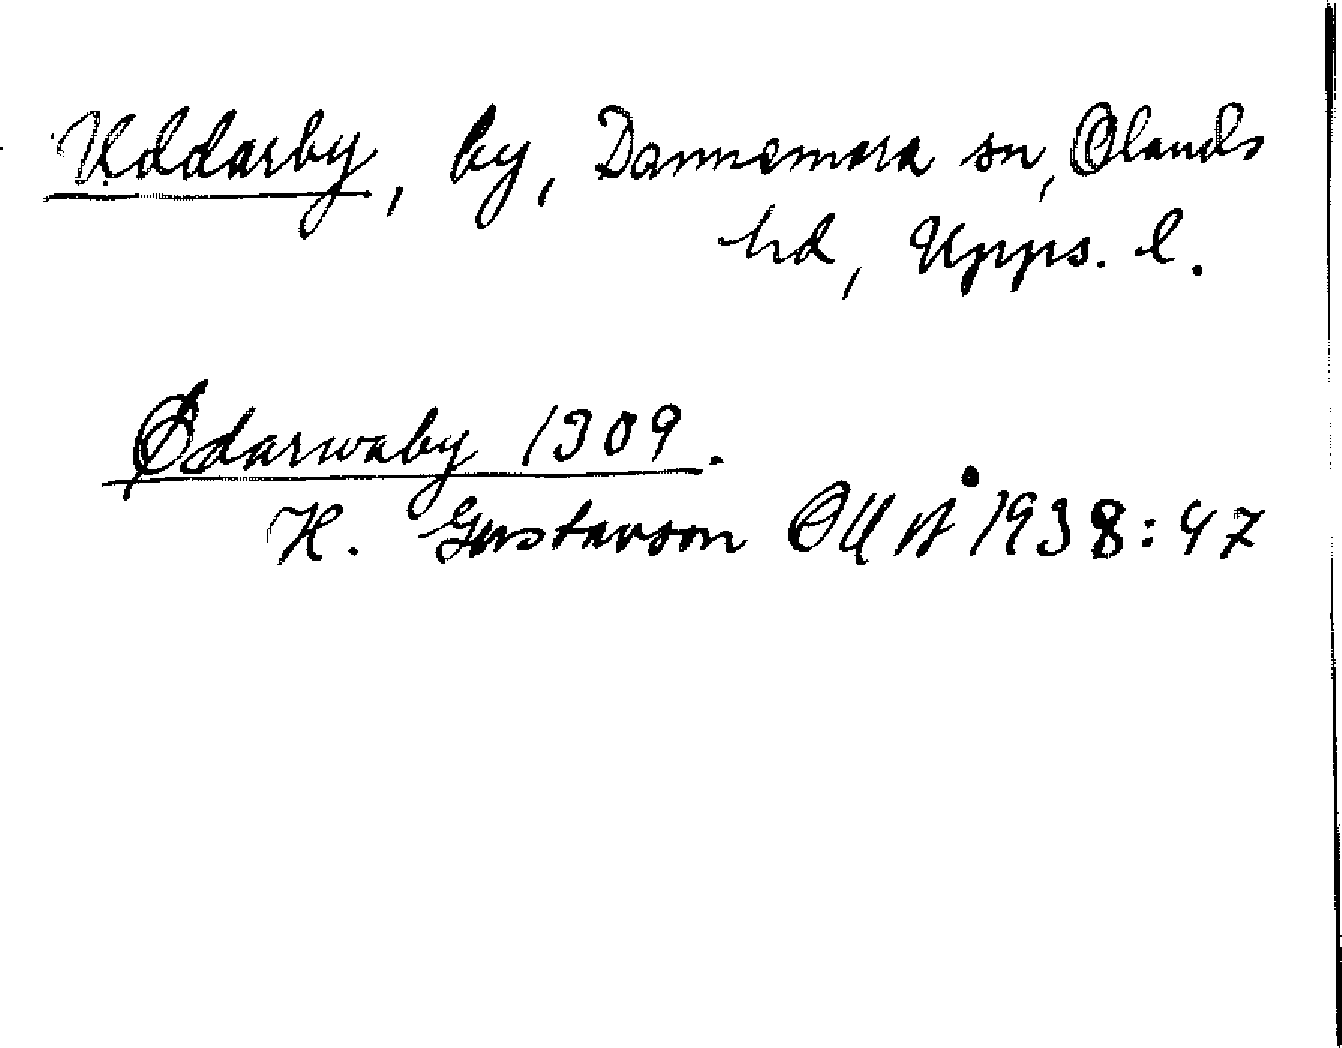 Uddarby, by, Dannemora sn, Olands
hd, Upps. l.
Ødarwaby 1309.
H. Gustavson OUÅ 1938:47